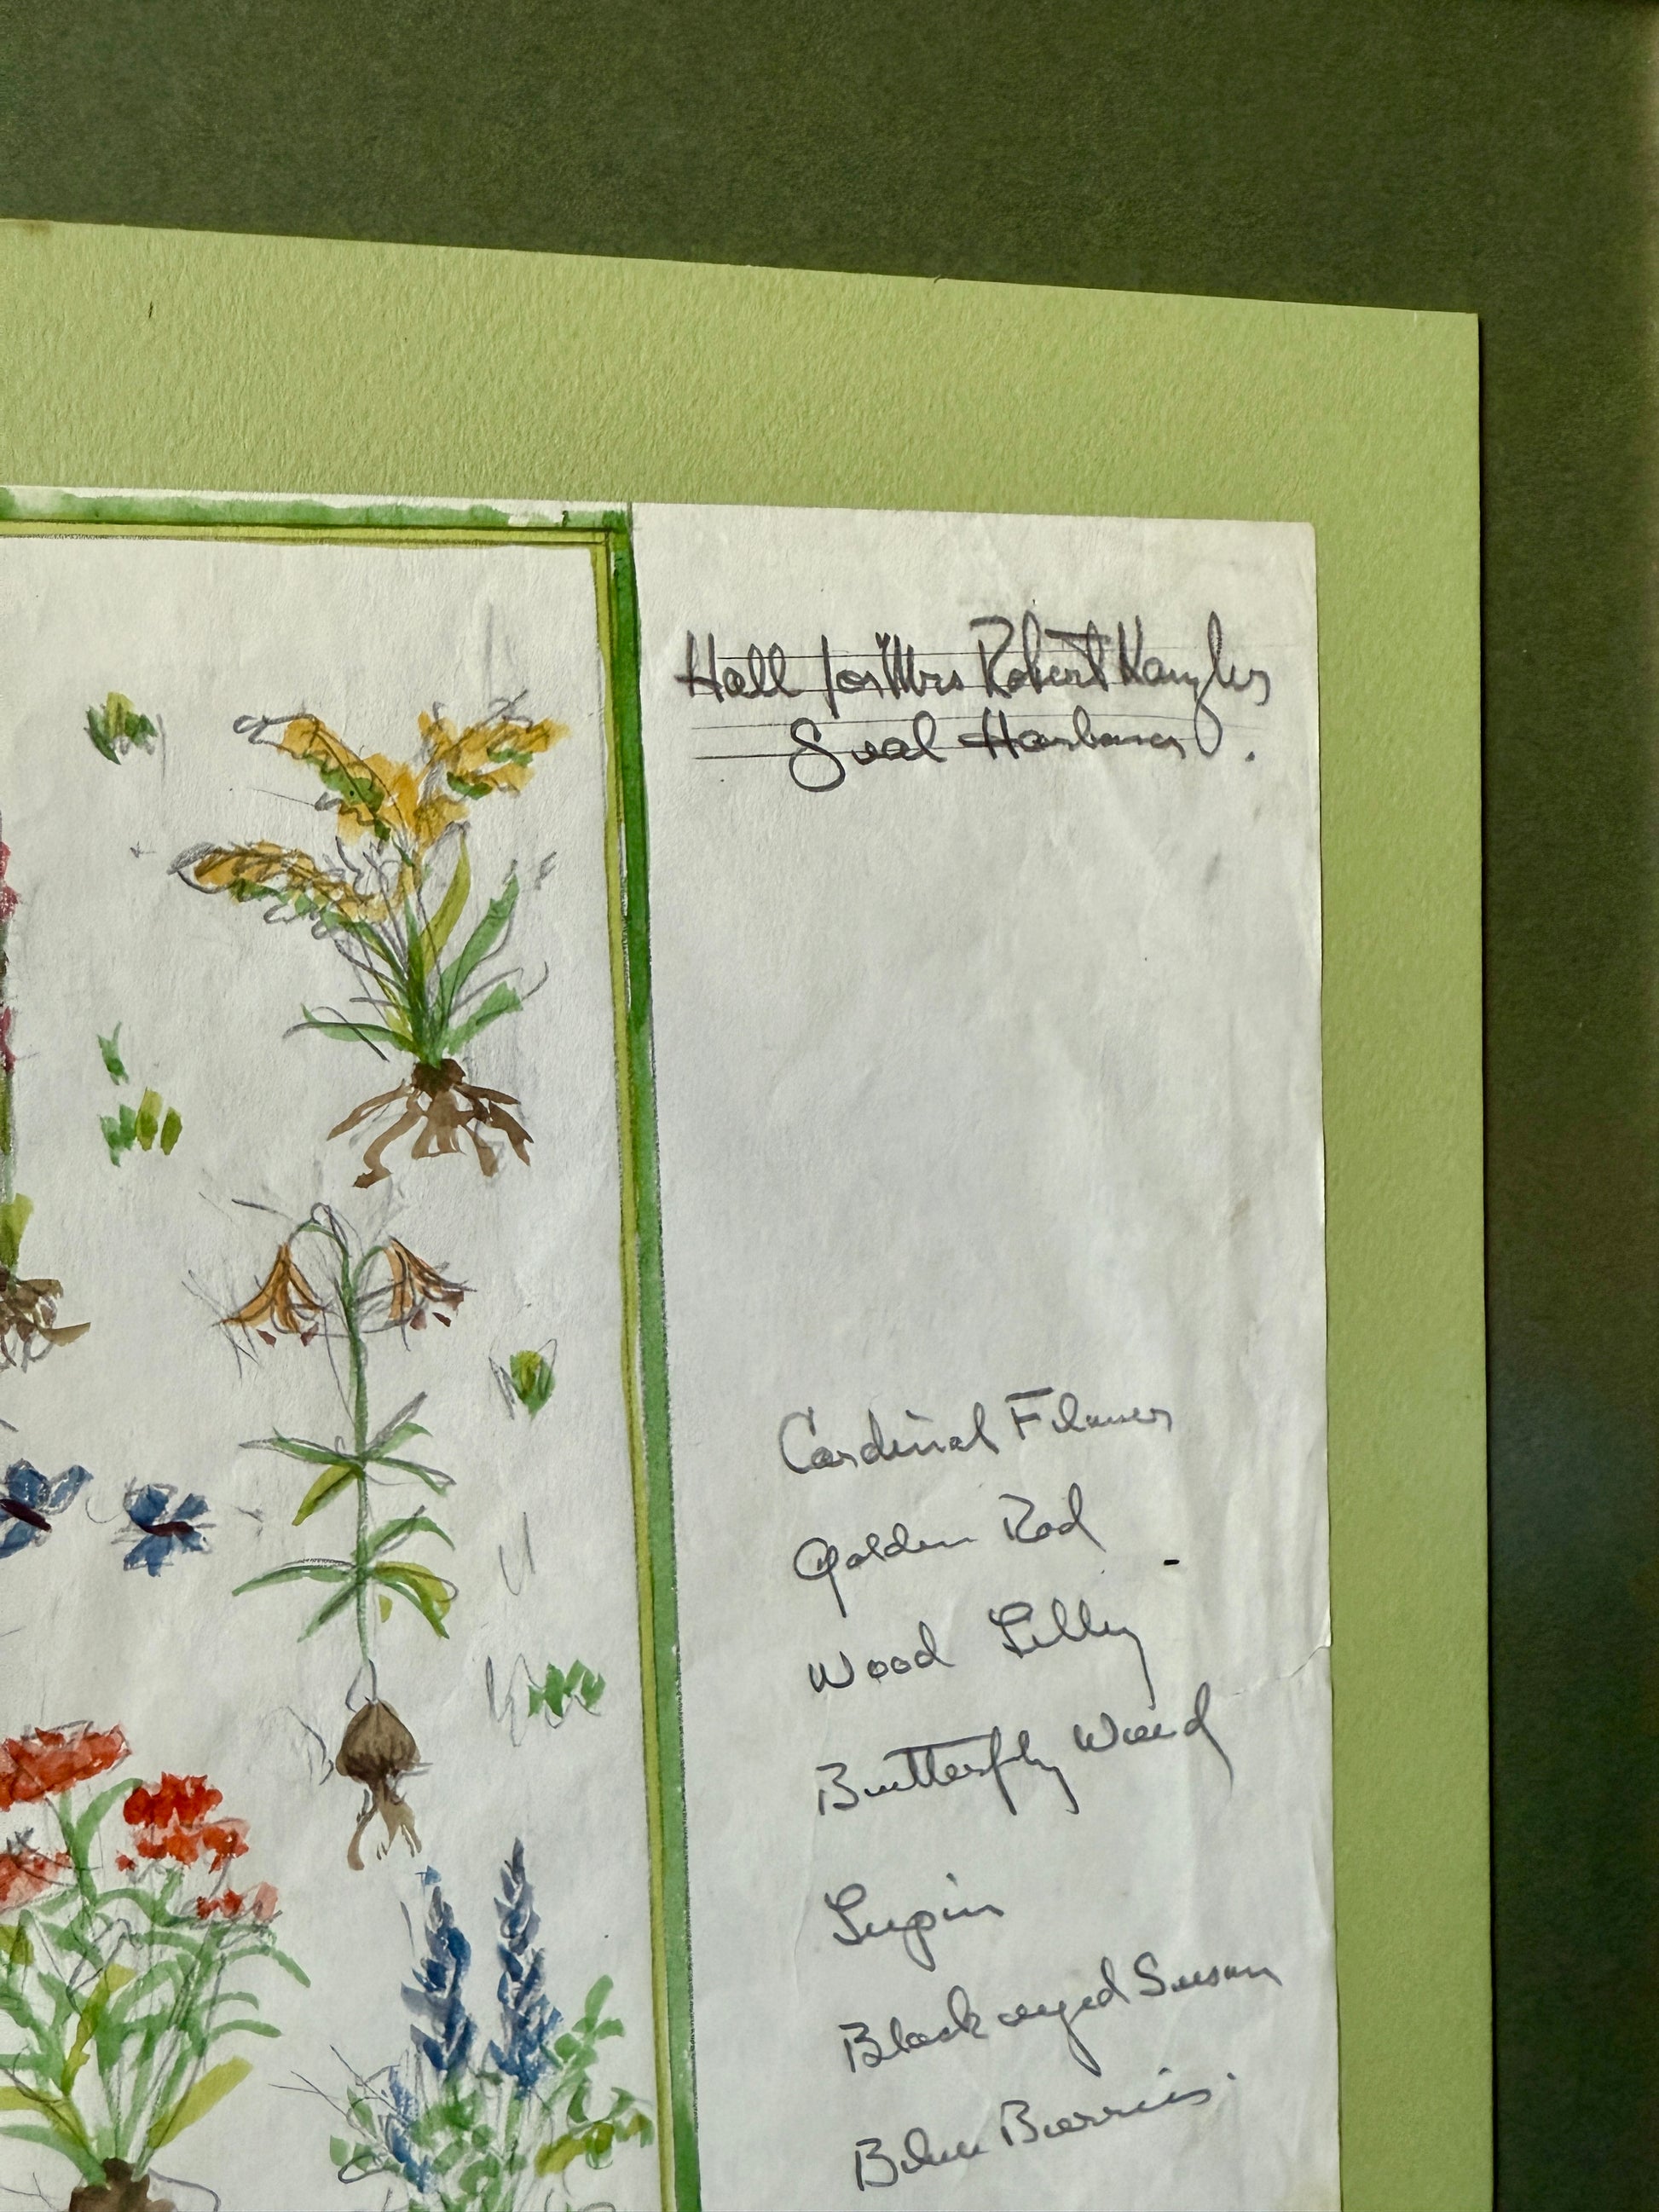 Hall for Mrs Robert Kanzler
Seal Harbour.
Cardinal Flower
Golden Rod
Wood Lilly
Butterfly Weed
Lupin
Black eyed Susan
Blue Berries.